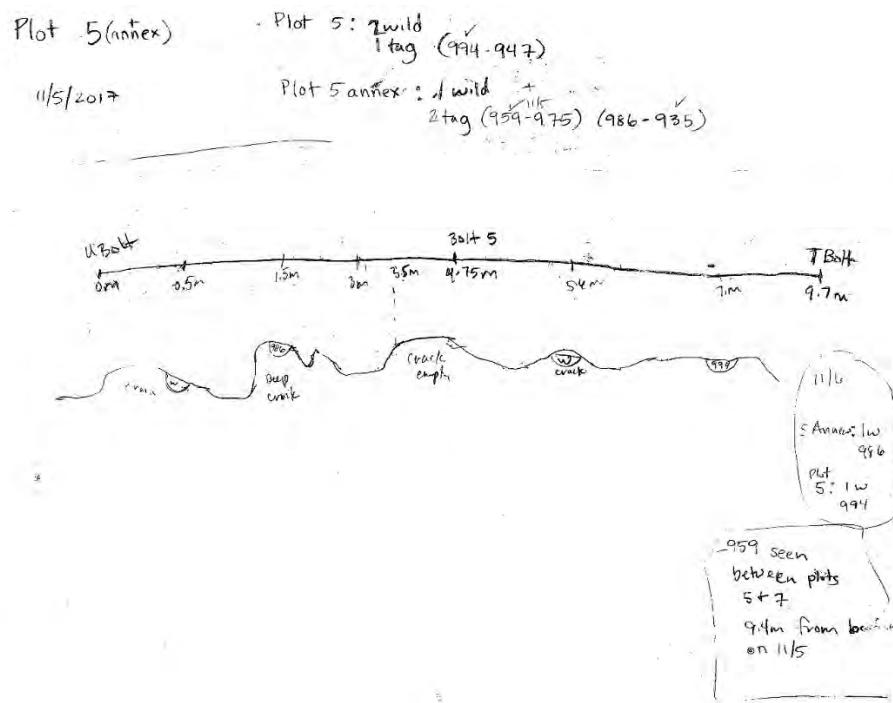 Plot 5 (annex)
11/5/2017
Plot 5: 2 wild
1 tag (994-947)
Plot 5 annex: 1 wild +
2 tag (959-975) (986-935)
11/5
U Bolt
Bolt 5
T Bolt
0m
0.5m
1.5m
3m
3.5m
4.75m
5.6m
7m
9.7m
W
986
Deep
crack
crack
empty
W
crack
994
11/6
5 Annex: 1w
986
Plot
5: 1w
994
959 seen
between plots
5+7
9.4m from
on 11/5